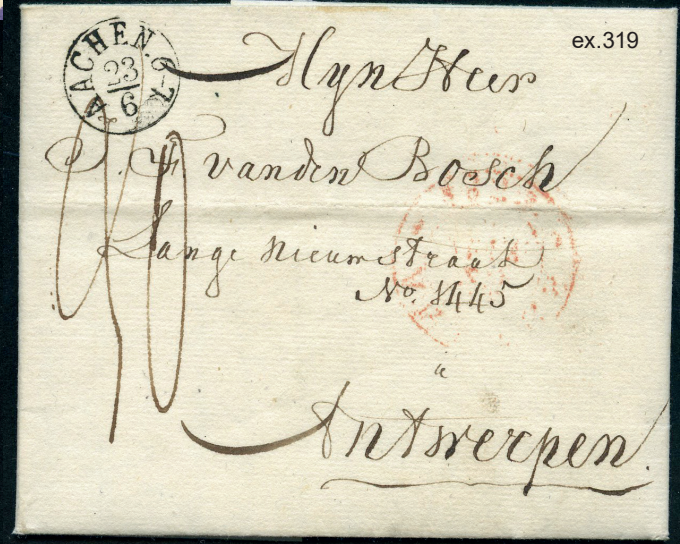 ex.319
AACHEN. 6-7
23
6
Mynheer
J. F vanden Bosch
Lange nieuwstraat
No. 1445
a
Antwerpen.